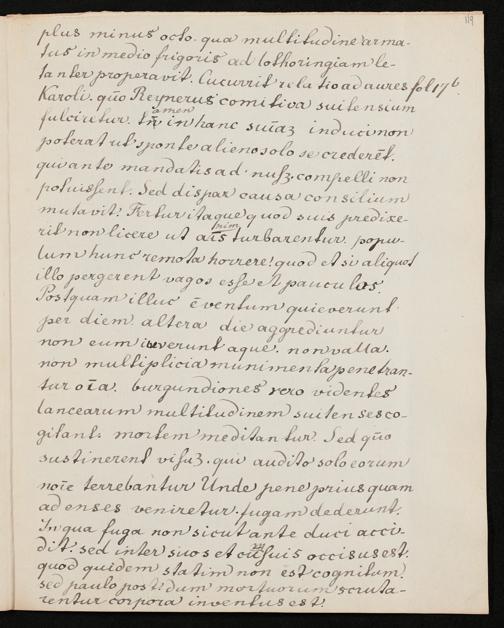 119
plus minus octo. qua multitudine arma-
tus in medio frigoris ad lothoringiam le-
tanter properavit. Cucurrit relatio ad aures fol 176.
Karoli. quo Reynerus comitiva suitensium
fulciretur. tn̄ amen in hanc suīaz induci non
poterat ut sponte alieno solo se crederēt.
qui ante mandatis ad nusz. compelli non
potuissent. Sed dispar causa consilium
mutavit: Fertur itaque quod suis predixe-
rit non licere ut aīs turbarentur. popu-
lum hunc remota horrere! quod et si aliquot
illo pergerent vagos esse et pauculos.
Postquam illuc ēventum quieverunt
per diem. altera die aggrediuntur
non eum iuverunt aque. non valla.
non multiplicia munimenta penetran-
tur oīa. burgundiones vero videntes
lancearum multitudinem suitenses co-
gitant: mortem meditantur. Sed quō
sustinerent visuz. qui audito solo eorum
noīe terrebantur Unde pene prius quam
ad enses veniretur. fugam dederunt.
In qua fuga non sicut ante duci acci-
dit. sed inter suos et cū suis occisus est.
quod quidem statim non est cognitum.
sed paulo post: dum mortuorum scruta-
rentur corpora inventus est!